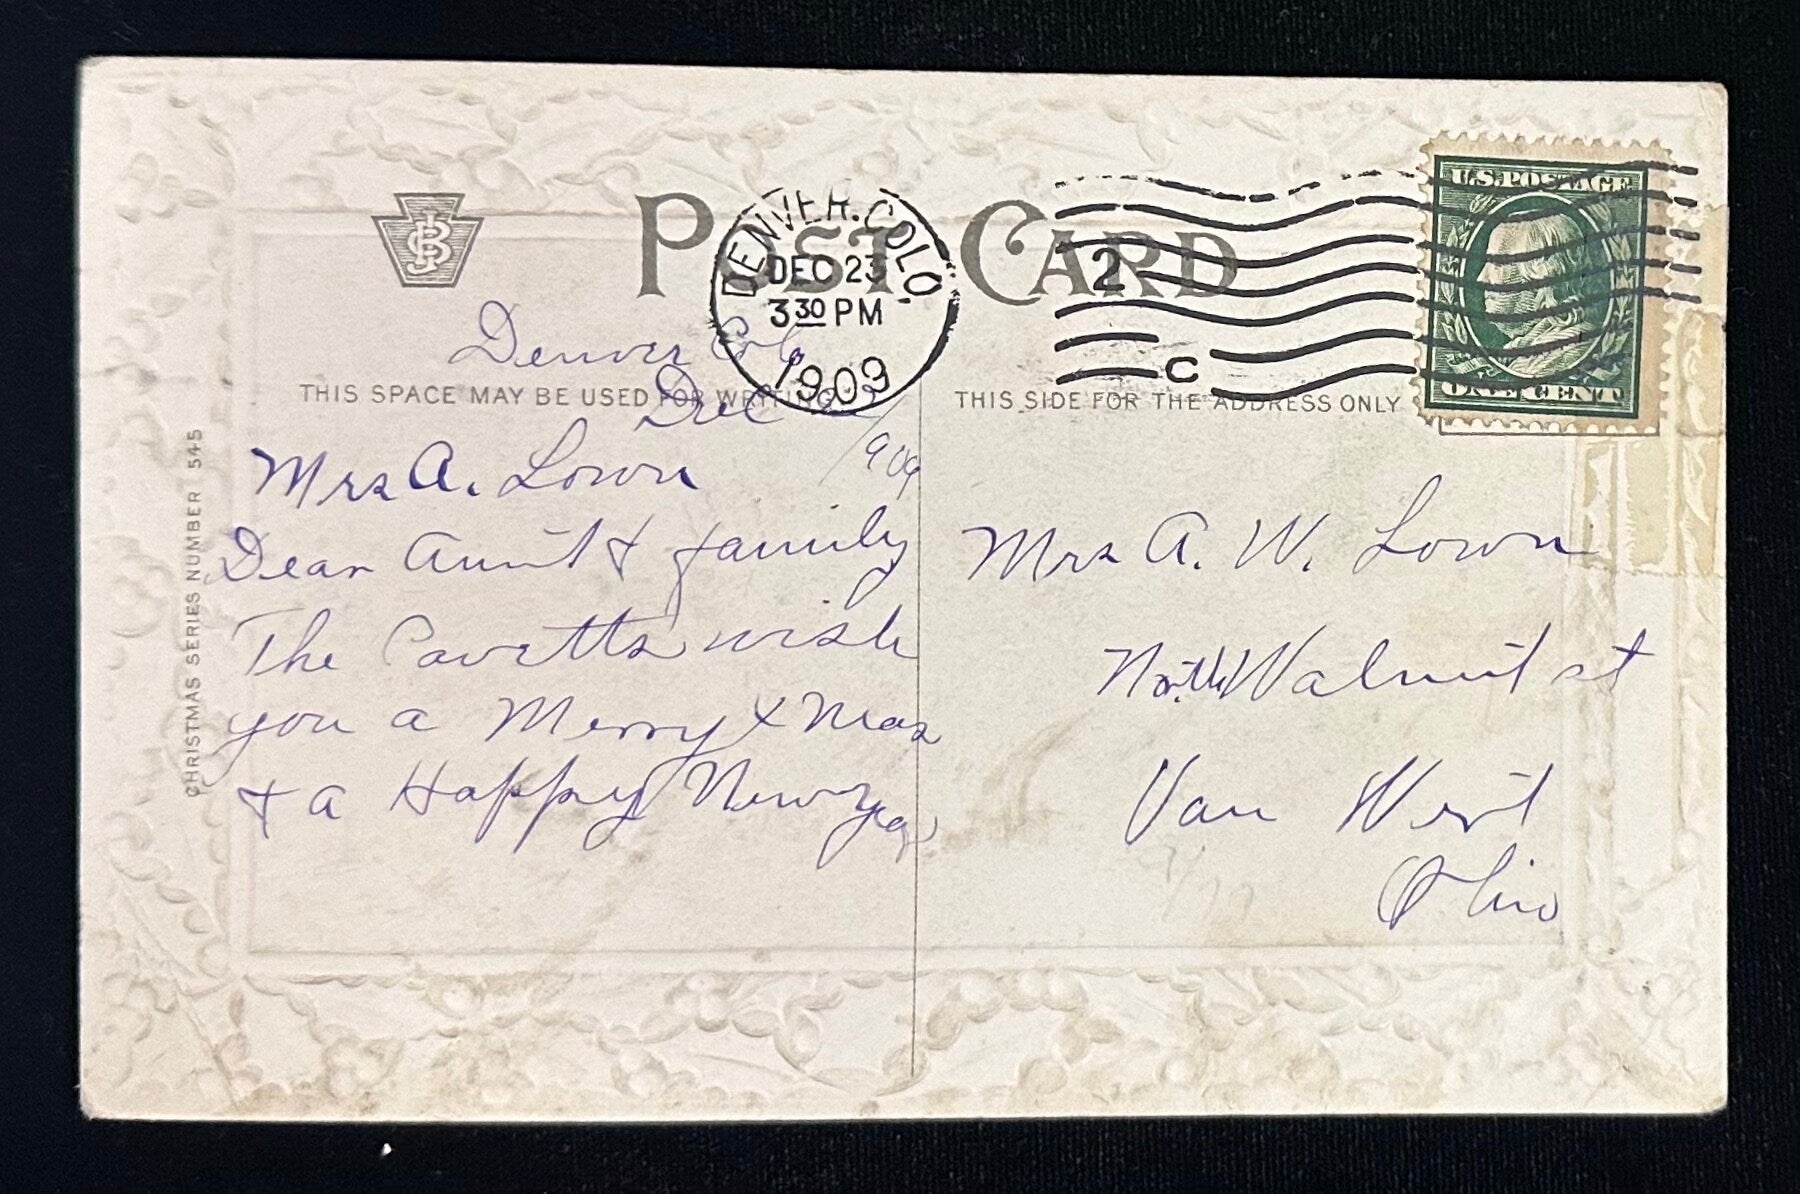 POST CARD
JSB
DENVER. COLO.
DEC 23
3 30 PM
1909
2
C
U.S. POSTAGE
ONE CENT
THIS SPACE MAY BE USED FOR WRITING
THIS SIDE FOR THE ADDRESS ONLY
CHRISTMAS SERIES NUMBER 545
Denver Colo
Dec
1909
Mrs A. Lown
Dear Aunt & family
The Pavetts wish
you a Merry Xmas
& a Happy New Year
Mrs A. W. Lown
North Walnut st
Van Wert
Ohio